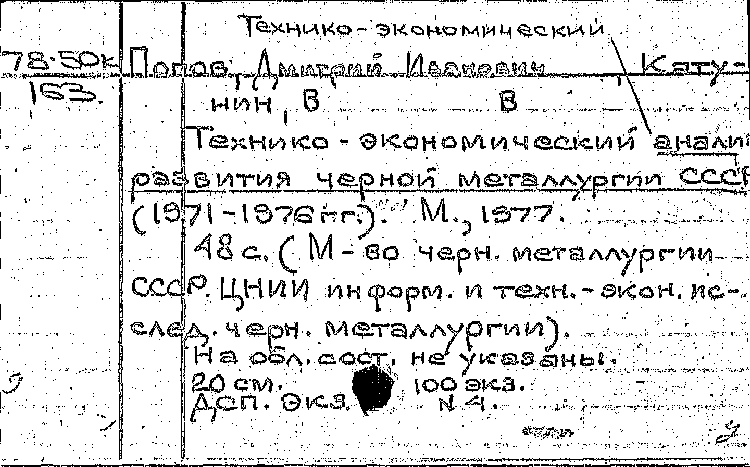 Технико-экономический
78-50к Попов, Дмитрий Иванович, Кату-
163.
нин, В В
Технико-экономический анализ
развития черной металлургии СССР
(1971-1976 гг.). М., 1977.
48 с. (М-во черн. металлургии
СССР. ЦНИИ информ. и техн.-экон. ис-
след. черн. металлургии).
На обл. сост. не указаны.
20 см. 100 экз.
ДСП. Экз. N 4.